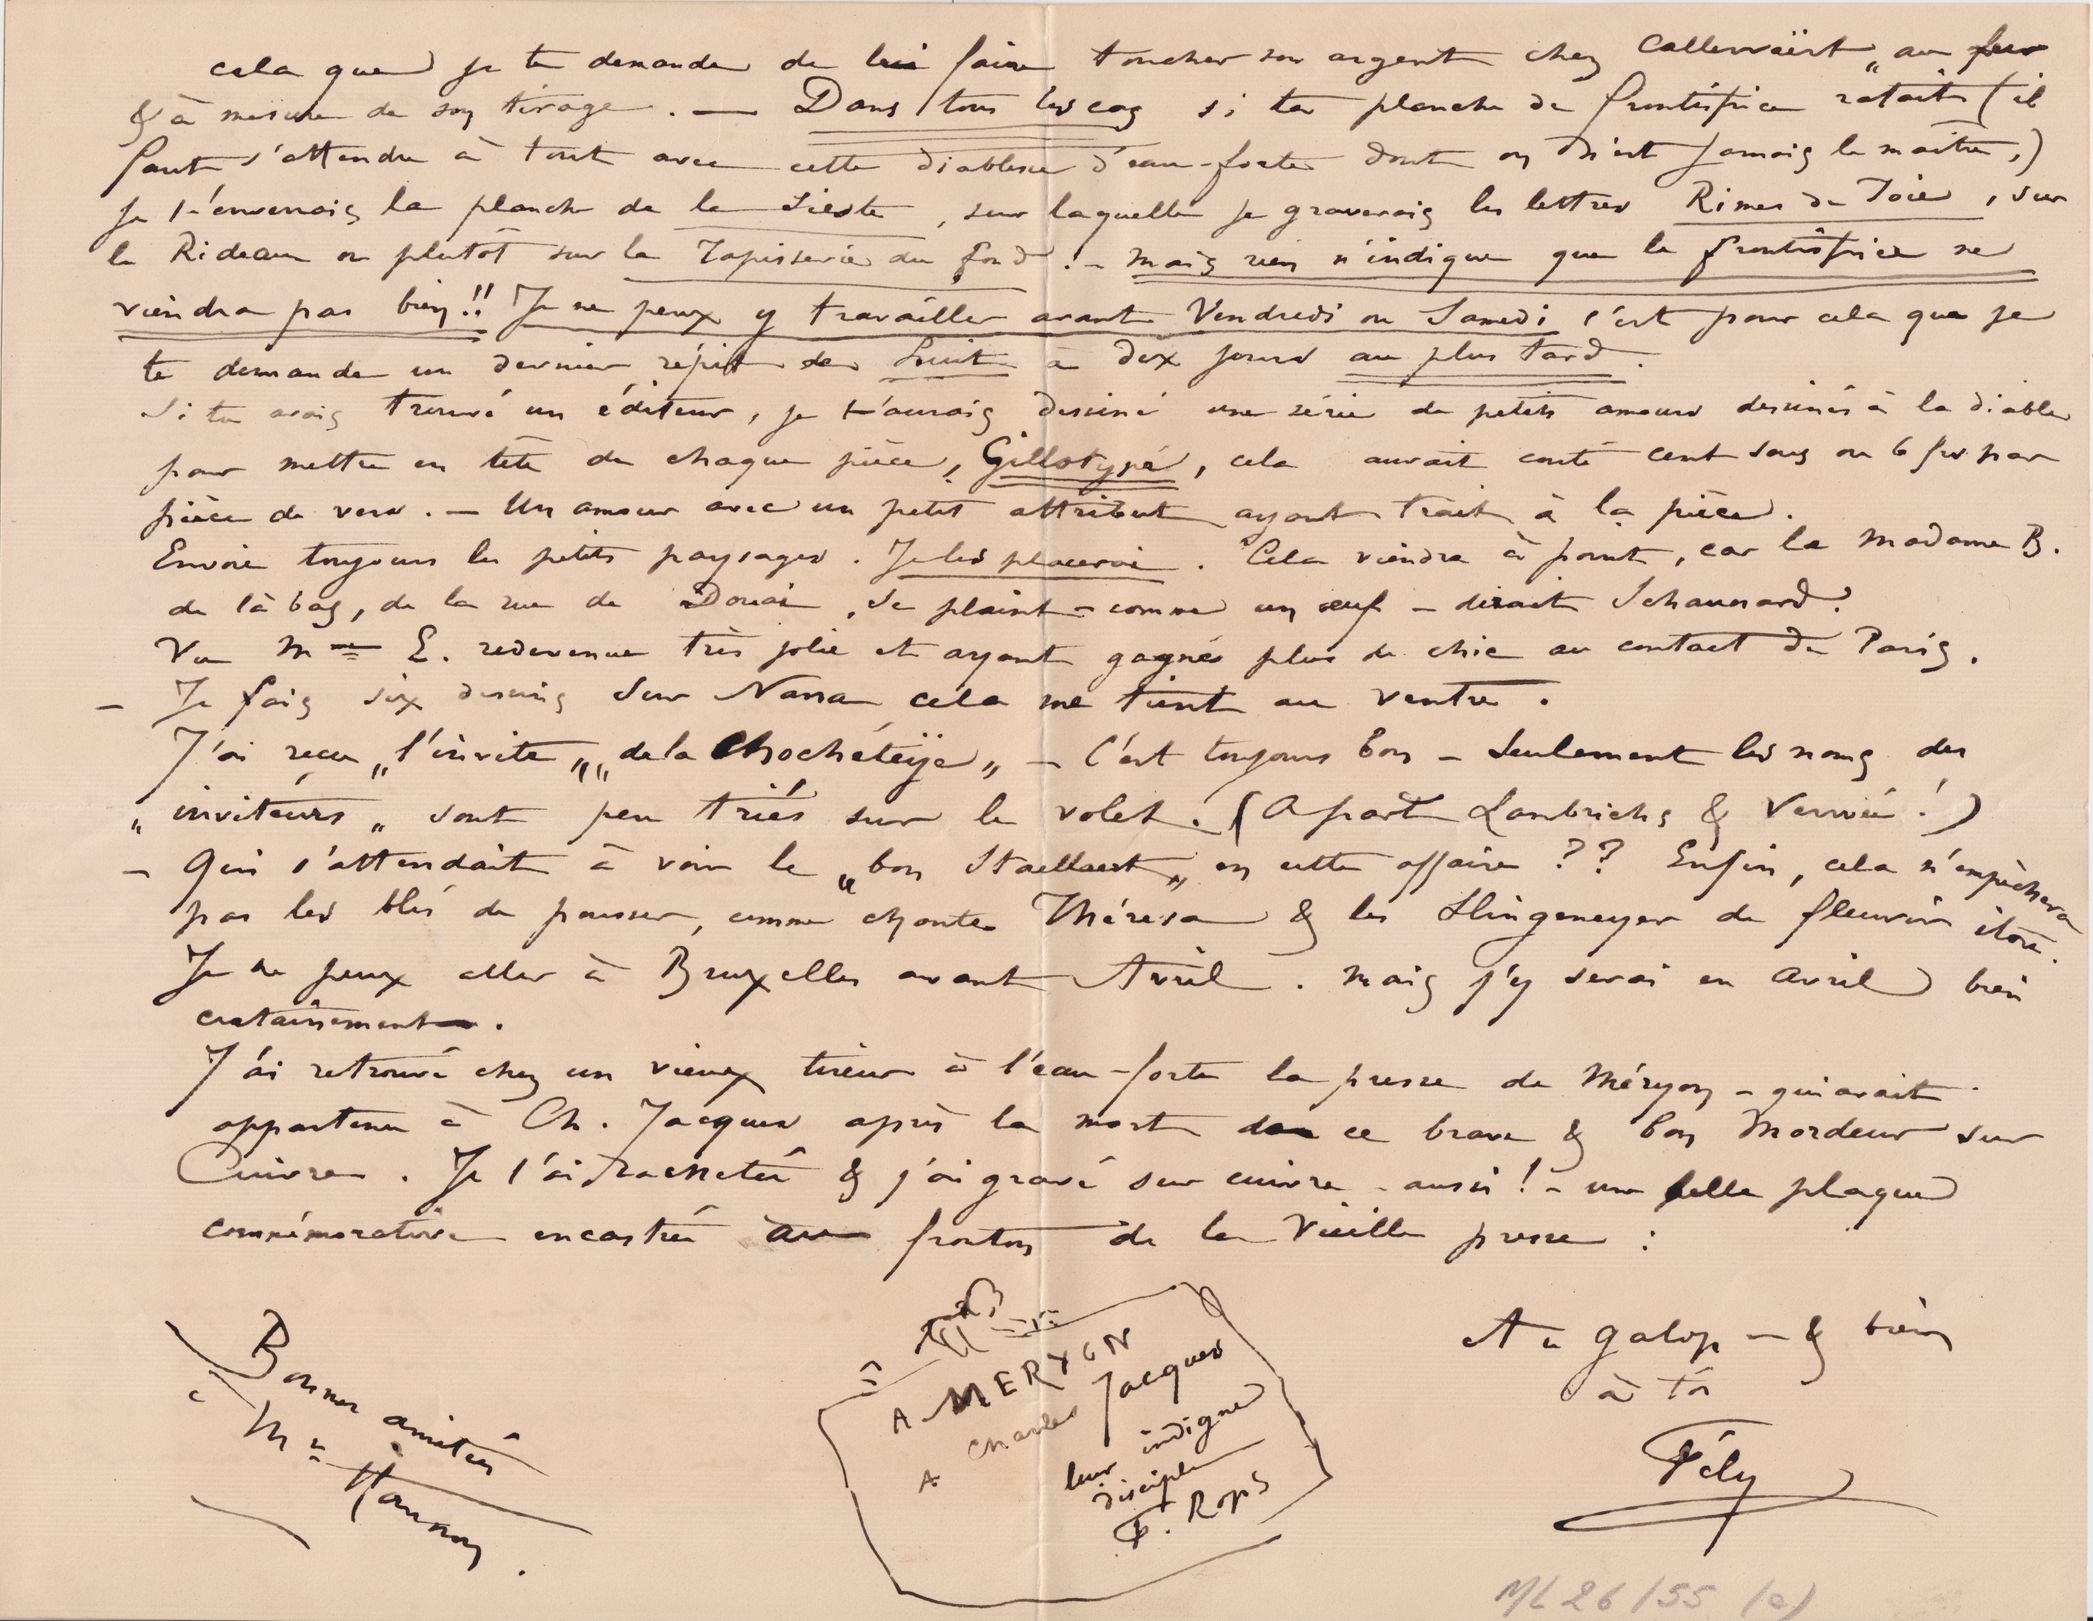 cela que je te demande de lui faire toucher son argent chez Callewaërt „au fur
& à mesure de son tirage. — Dans tous les cas si ta planche de frontispice ratait (il
faut s'attendre à tout avec cette diablesse d'eau-forte dont on n'est jamais le maître,)
je t'enverrais la planche de la Sieste, sur laquelle je graverais les lettres Rimes de Joie, sur
le Rideau ou plutôt sur la Tapisserie du fond. – mais rien n'indique que le frontispice ne
viendra pas bien!! Je ne peux y travailler avant Vendredi ou Samedi c'est pour cela que je
te demande un dernier répit de huit à dix jours au plus tard.
Si tu avais trouvé un éditeur, je t'aurais dessiné une série de petits amours dessinés à la diable
pour mettre en tête de chaque pièce, Gillotypé, cela aurait couté cent sous ou 6 frs par
pièce de vers. – Un amour avec un petit attribut ayant trait à la pièce.
Envoie toujours les petits paysages. Je les placerai. Cela viendra à point, car la Madame B.
de là bas, de la rue de Douai, se plaint – comme un œuf – dirait Schaunard.
Vu Mme E. redevenue très jolie et ayant gagné plus de chic au contact de Paris.
– Je fais six dessins sur Nana cela me tient au ventre.
J'ai reçu „l'invite„ „de la Chochetéije„ – C'est toujours bon – Seulement les noms des
„inviteurs„ sont peu triés sur le volet. (Apart Lambrichs & Verwée!)
– Qui s'attendait à voir le „bon Stallaert„ en cette affaire?? Enfin, cela n'empêchera
pas les blés de pousser, comme chante Thérésa & les Slingeneyer de fleurir itou.
Je ne peux aller à Bruxelles avant Avril. Mais j'y serai en avril bien
certainement.
J'ai retrouvé chez un vieux tireur à l'eau-forte la presse de Méryon – qui avait
appartenu à Ch. Jacques après la mort de ce brave & bon Mordeur sur
Cuivre. Je l'ai rachetée & j'ai gravé sur cuivre – aussi! – une belle plaque
commémorative encastrée au fronton de la vieille presse :
A MERYON
A Charles Jacques
leur indigne
disciple
F. Rops
Au galop – & bien
à toi
Fély
Bonnes amitiés
à Me Hannon.
ML 26/55 (a)